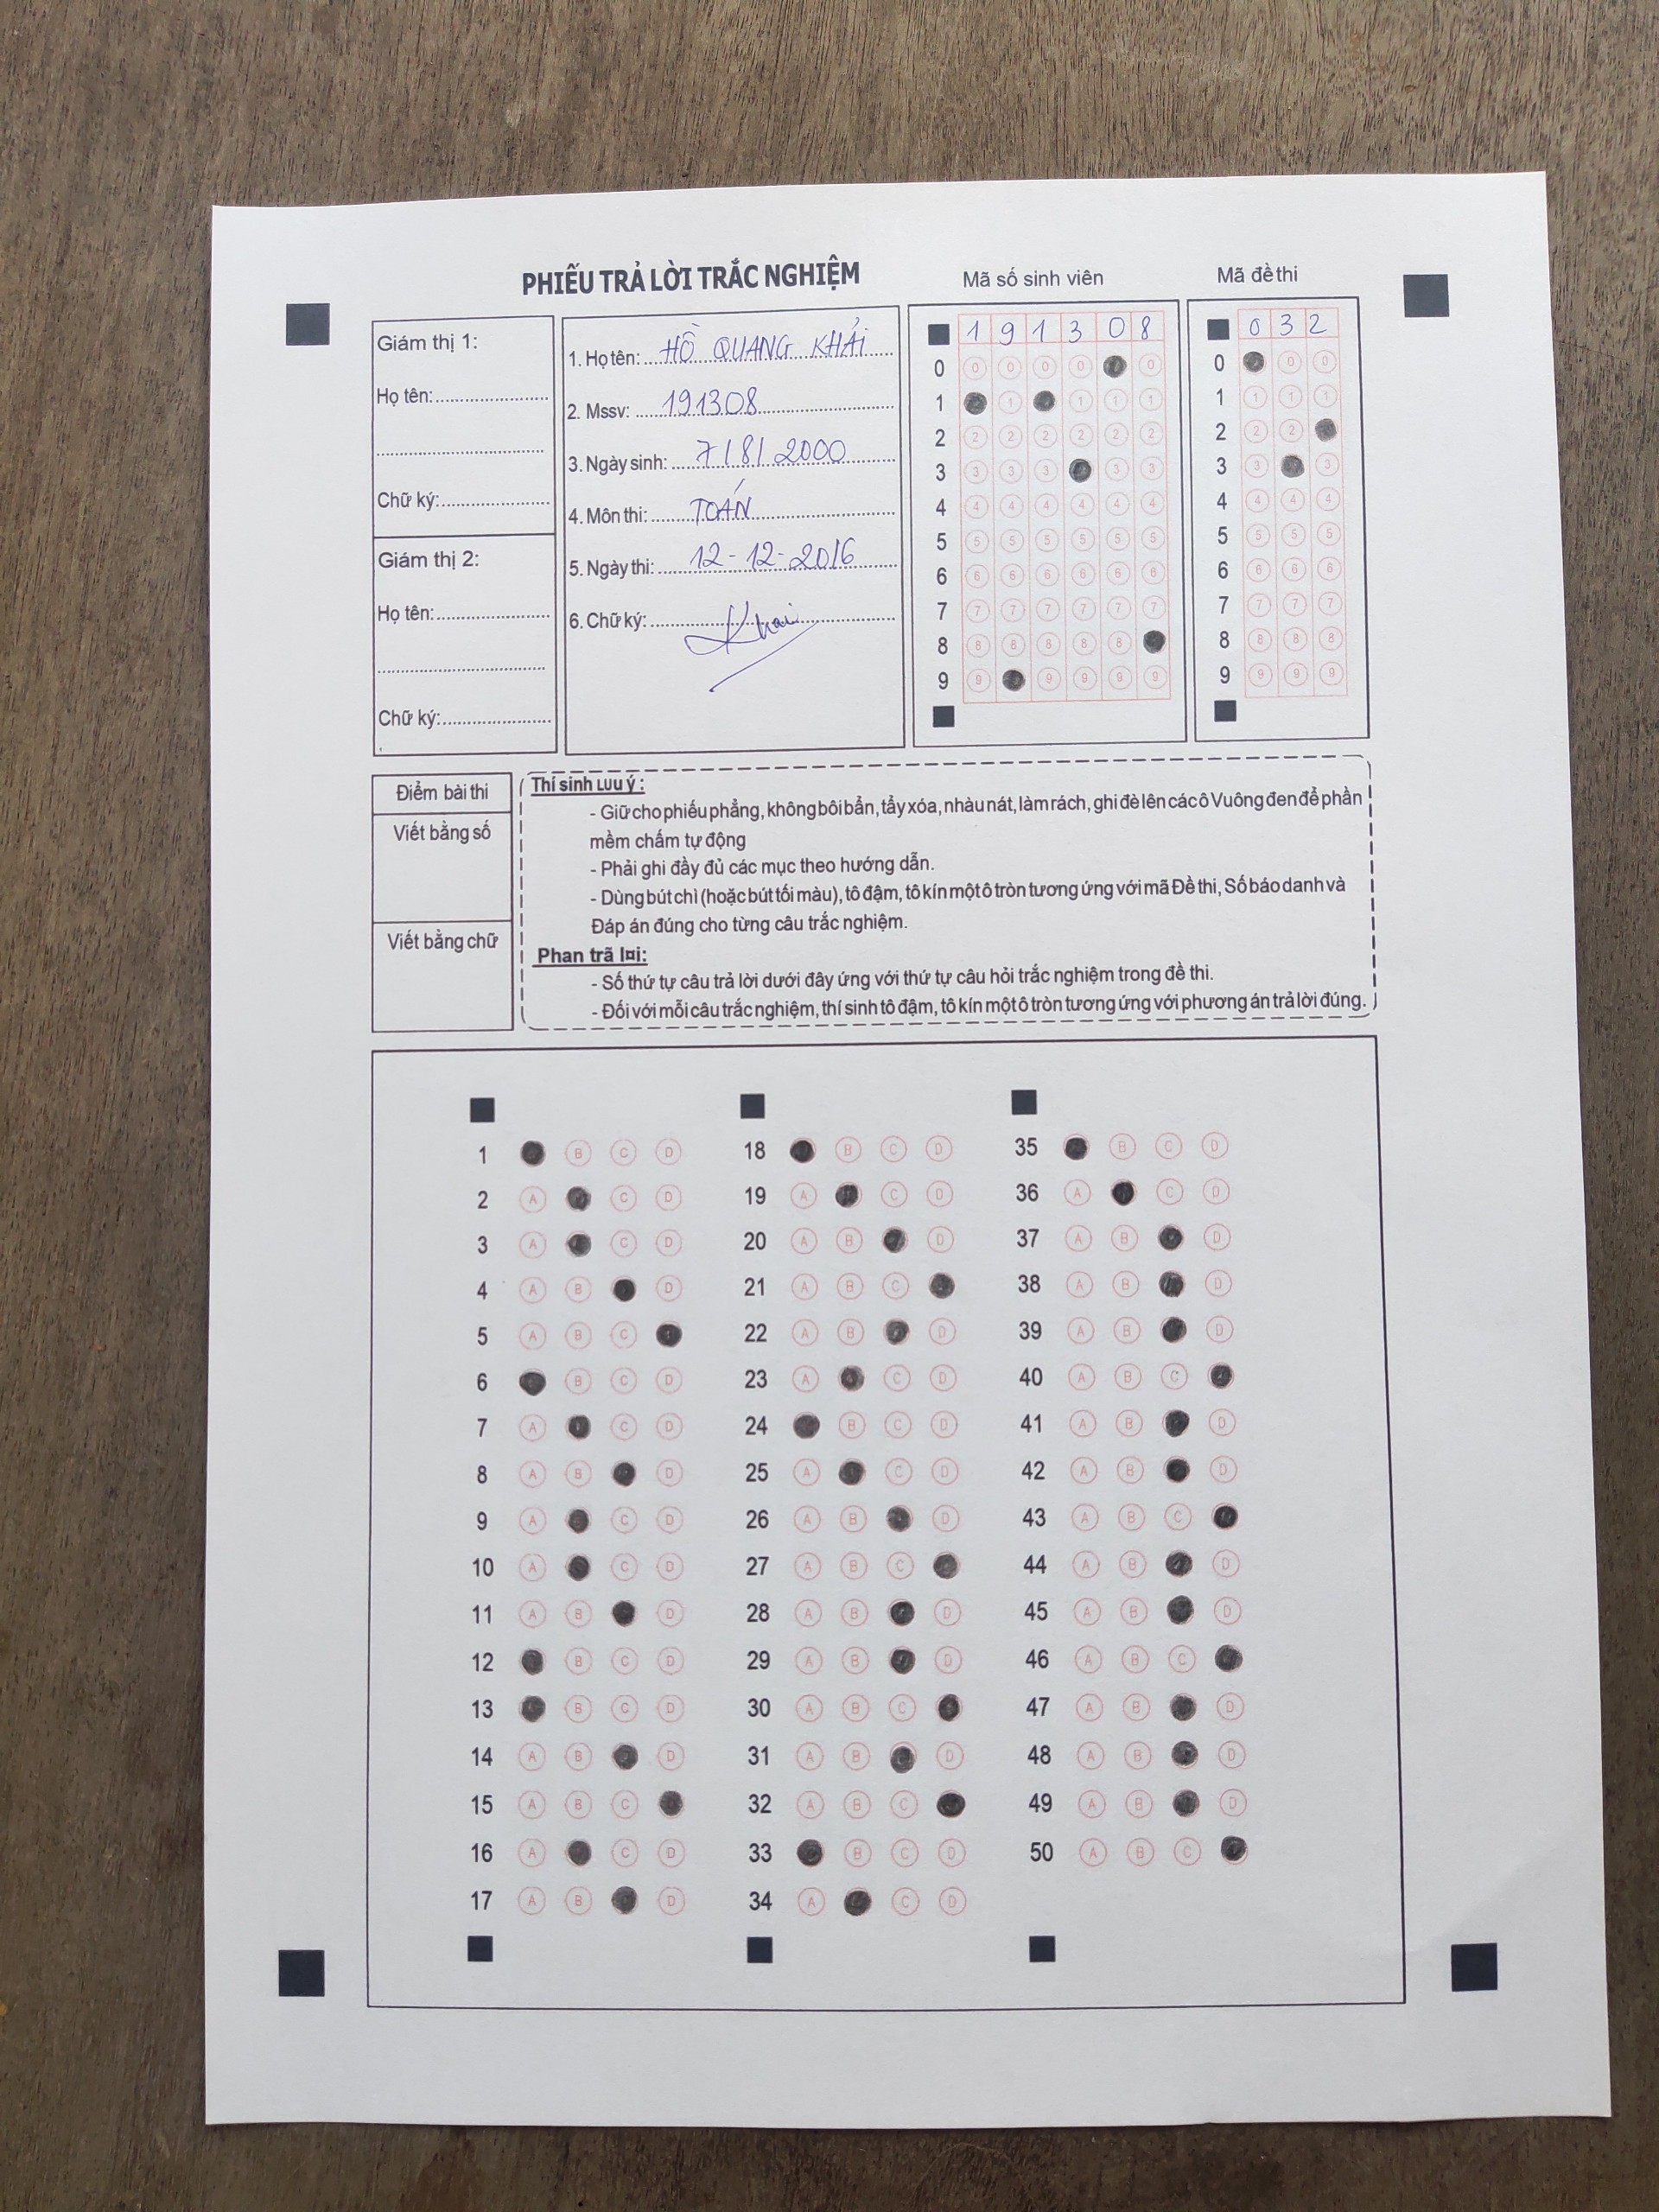 PHIẾU TRẢ LỜI TRẮC NGHIỆM
Mã số sinh viên
Mã đề thi
Giám thị 1:
Họ tên:
Chữ ký:
Giám thị 2:
Họ tên:
Chữ ký:
1. Họ tên: HỒ QUANG KHẢI
2. Mssv: 191308
3. Ngày sinh: 7/8/2000
4. Môn thi: TOÁN
5. Ngày thi: 12-12-2016
6. Chữ ký: Khai
1 9 1 3 0 8
0 0 0 0 0 0
1 1 1 1 1
2 2 2 2 2 2 2
3 3 3 3 3 3
4 4 4 4 4 4 4
5 5 5 5 5 5 5
6 6 6 6 6 6 6
7 7 7 7 7 7 7
8 8 8 8 8 8
9 9 9 9 9 9
0 3 2
0 0 0
1 1 1 1
2 2 2
3 3 3
4 4 4 4
5 5 5 5
6 6 6 6
7 7 7 7
8 8 8 8
9 9 9 9
Điểm bài thi
Viết bằng số
Viết bằng chữ
Thí sinh LƯU ý :
- Giữ cho phiếu phẳng, không bôi bẩn, tẩy xóa, nhàu nát, làm rách, ghi đè lên các ô Vuông đen để phần
mềm chấm tự động
- Phải ghi đầy đủ các mục theo hướng dẫn.
- Dùng bút chì (hoặc bút tối màu), tô đậm, tô kín một ô tròn tương ứng với mã Đề thi, Số báo danh và
Đáp án đúng cho từng câu trắc nghiệm.
Phan trã l¤i:
- Số thứ tự câu trả lời dưới đây ứng với thứ tự câu hỏi trắc nghiệm trong đề thi.
- Đối với mỗi câu trắc nghiệm, thí sinh tô đậm, tô kín một ô tròn tương ứng với phương án trả lời đúng.
1 B C D
2 A C D
3 A C D
4 A B D
5 A B C
6 B C D
7 A C D
8 A B D
9 A C D
10 A C D
11 A B D
12 B C D
13 B C D
14 A B D
15 A B C
16 A C D
17 A B D
18 B C D
19 A C D
20 A B D
21 A B C
22 A B D
23 A C D
24 B C D
25 A C D
26 A B D
27 A B C
28 A B D
29 A B D
30 A B C
31 A B D
32 A B C
33 B C D
34 A C D
35 B C D
36 A C D
37 A B D
38 A B D
39 A B D
40 A B C
41 A B D
42 A B D
43 A B C
44 A B D
45 A B D
46 A B C
47 A B D
48 A B D
49 A B D
50 A B C